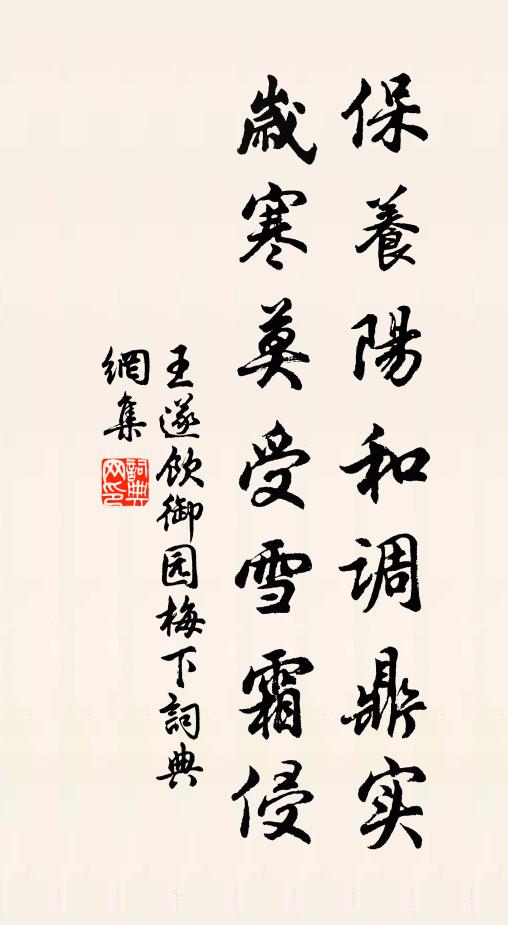 保養陽和调鼎实
歲寒莫受雪霜侵
王遂飲御园梅下詞典
網集
詞典
网印